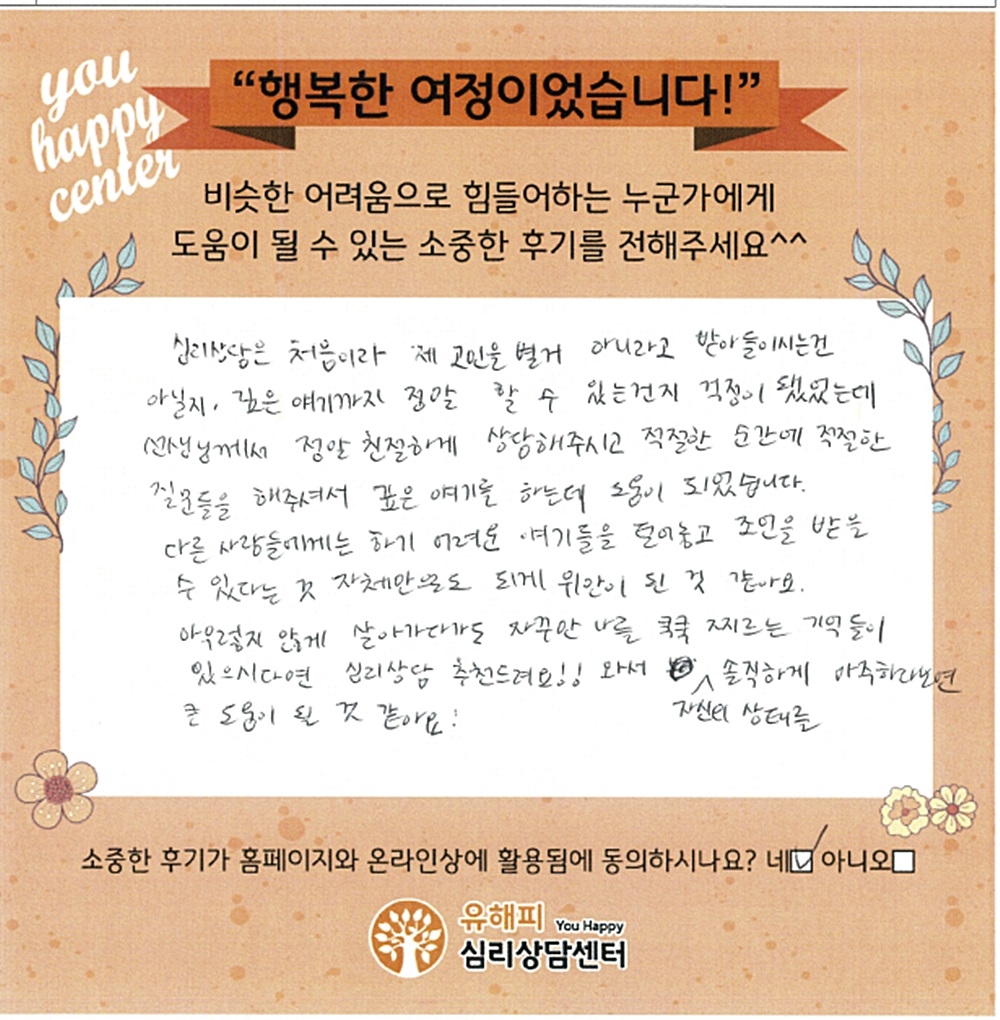 you
happy
center
“행복한 여정이었습니다!”
비슷한 어려움으로 힘들어하는 누군가에게
도움이 될 수 있는 소중한 후기를 전해주세요^^
심리상담은 처음이라 제 고민을 별거 아니라고 받아들이시는건
아닐지, 깊은 얘기까지 정말 할 수 있는건지 걱정이 됐었는데
선생님께서 정말 친절하게 상담해주시고 적절한 순간에 적절한
질문들을 해주셔서 깊은 얘기를 하는데 도움이 되었습니다.
다른 사람들에게는 하기 어려운 얘기들을 털어놓고 조언을 받을
수 있다는 것 자체만으로도 되게 위안이 된 것 같아요.
아무렇지 않게 살아가다가도 자꾸만 나를 쿡쿡 찌르는 기억들이
있으시다면 심리상담 추천드려요!! 와서 솔직하게 마주하다보면
자신의 상태를
큰 도움이 될 것 같아요!
소중한 후기가 홈페이지와 온라인상에 활용됨에 동의하시나요? 네☑ 아니오☐
유해피 You Happy
심리상담센터